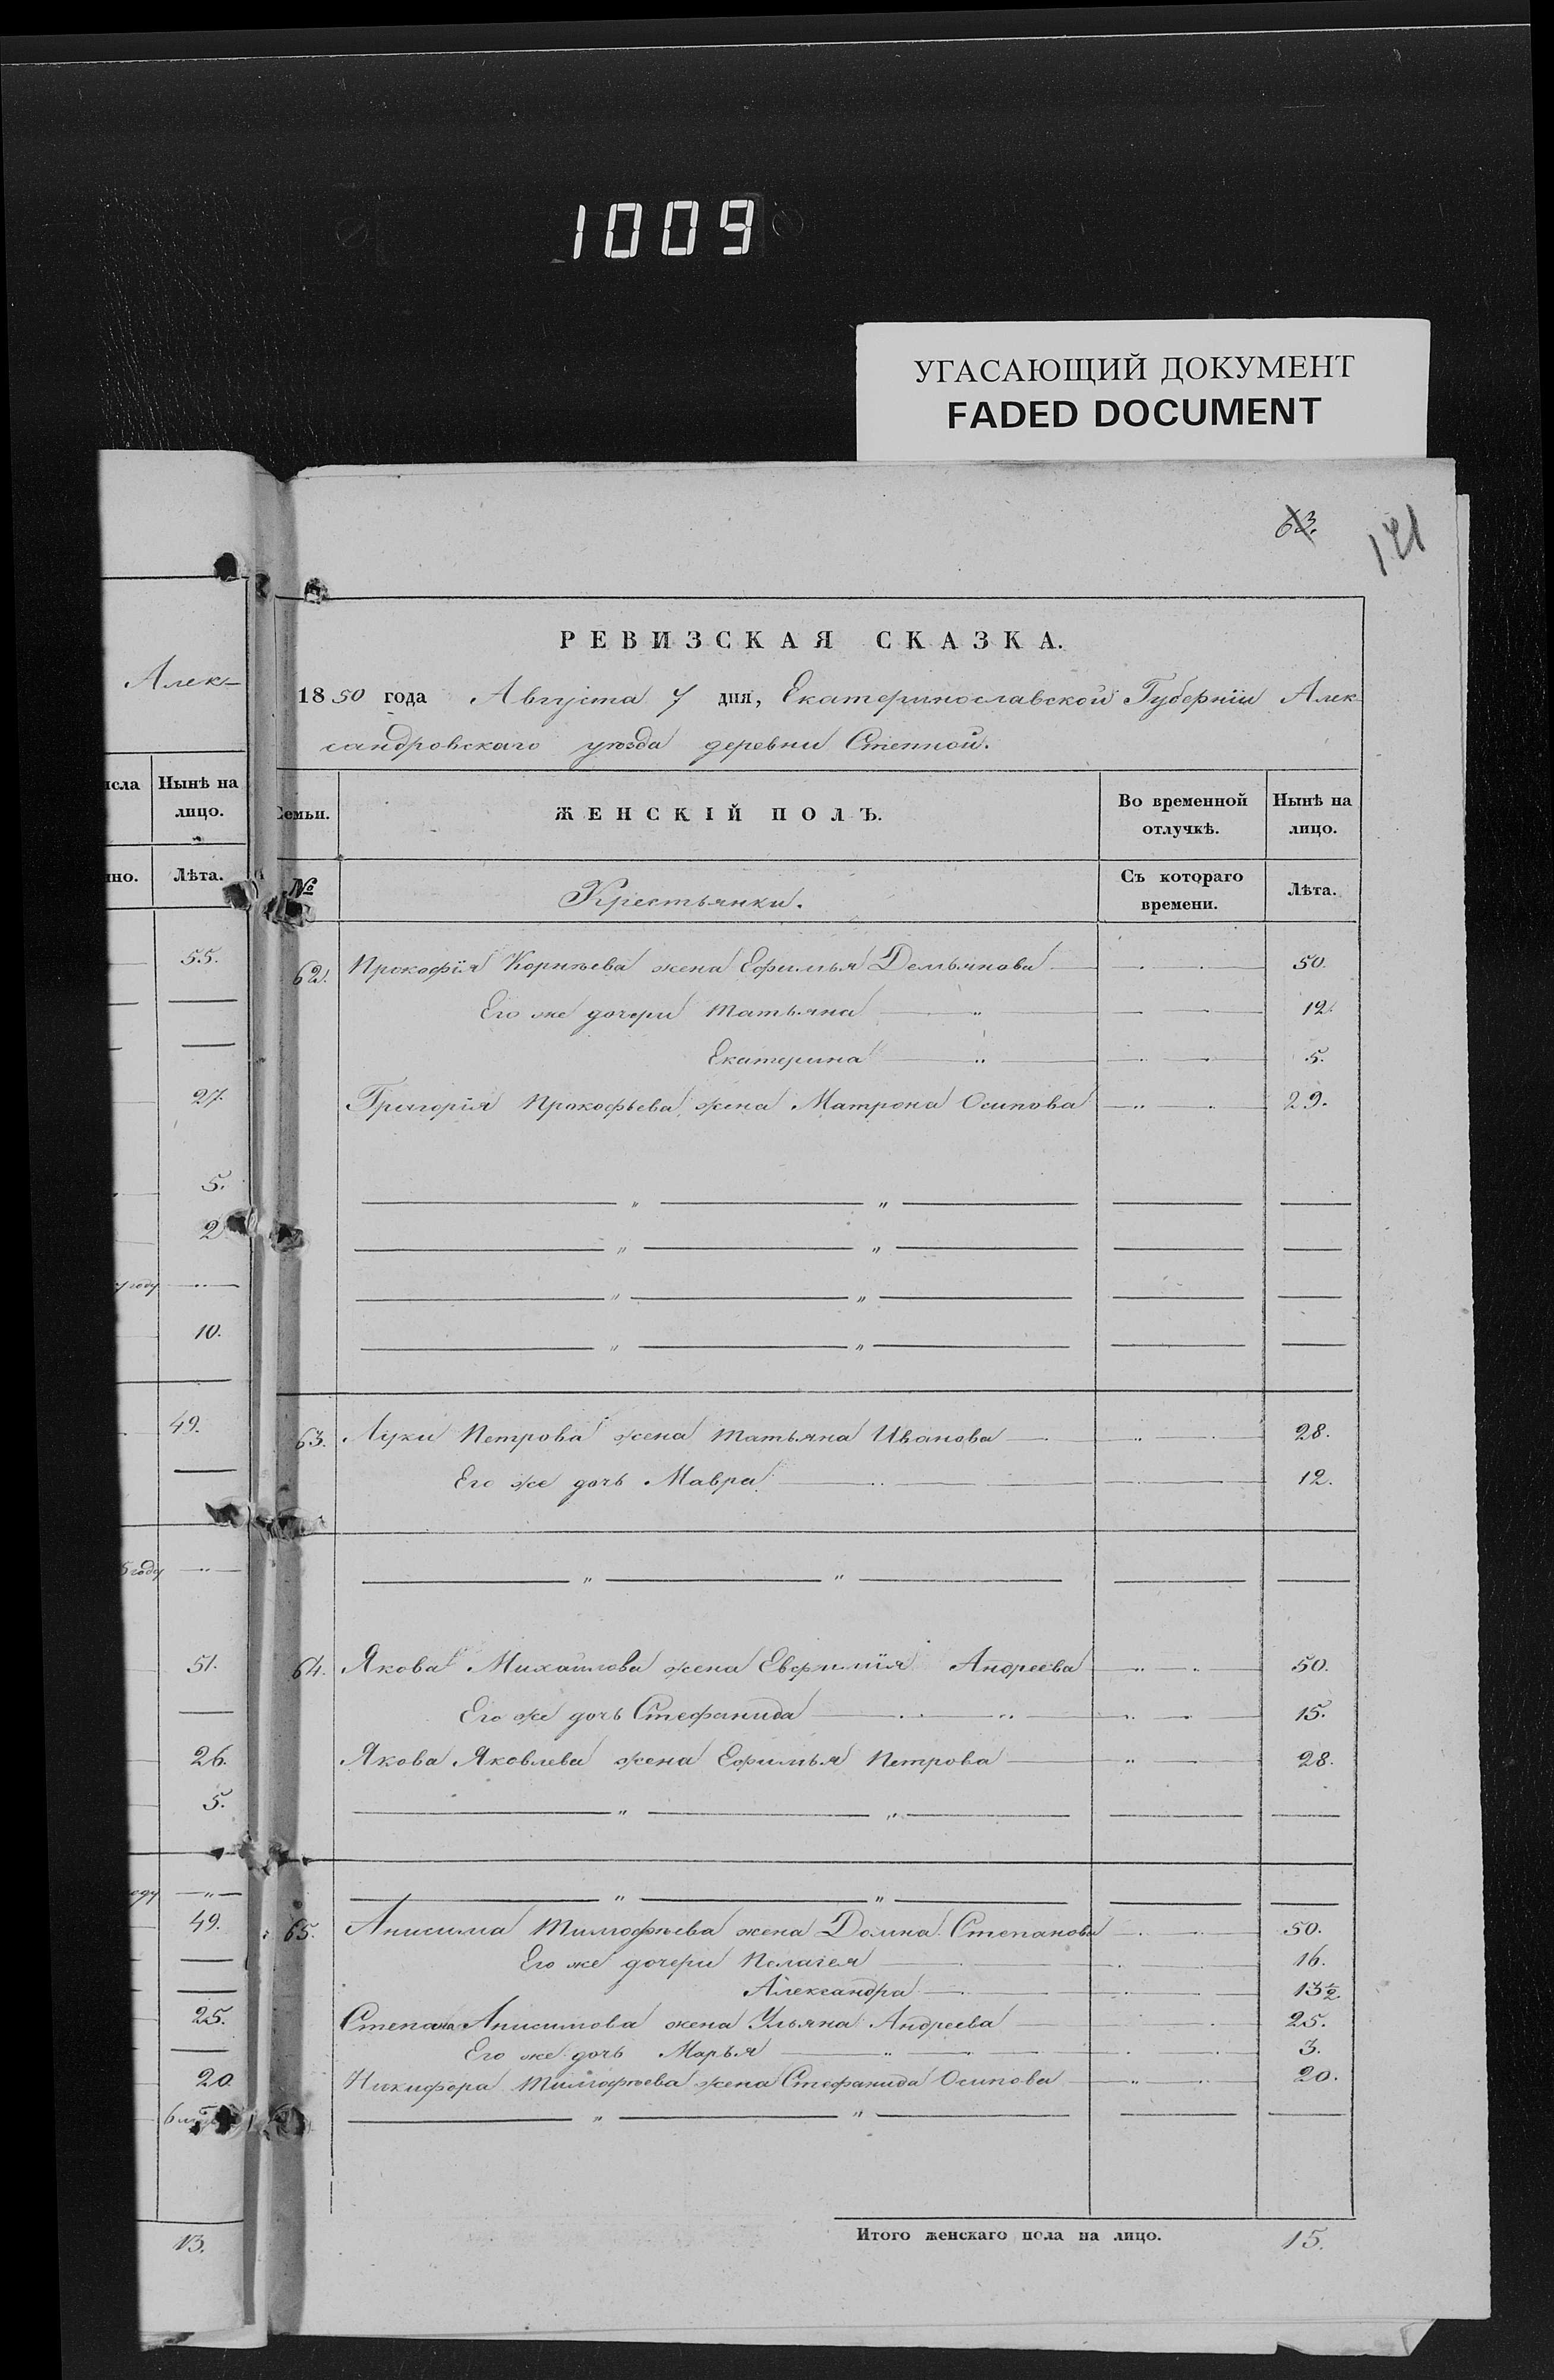 1009
УГАСАЮЩИЙ ДОКУМЕНТ
FADED DOCUMENT
63.
121
Алек-
исла
Нынѣ на лицо.
но.
Лѣта.
55.
27.
5.
2
году
10.
49.
году
51.
26.
5.
оду
49.
25.
20.
13.
РЕВИЗСКАЯ СКАЗКА.
1850 года Августа 7 дня, Екатеринославской Губерніи Алек
сандровскаго уѣзда деревни Степной.
Семьи.
ЖЕНСКІЙ ПОЛЪ.
Во временной отлучкѣ.
Нынѣ на лицо.
№
Крестьянки.
Съ котораго времени.
Лѣта.
62. Прокофія Корнѣева жена Ефимья Демьянова 50.
Его же дочери Татьяна " 12.
Екатерина " 5.
Григорія Прокофьева жена Матрона Осипова " 29.
" "
" "
" "
" "
63. Луки Петрова жена Татьяна Иванова " 28.
Его же дочь Мавра " 12.
" "
64. Якова Михайлова жена Евфимія Андреева " 50.
Его же дочь Стефанида " " 15.
Якова Яковлева жена Ефимья Петрова " 28.
" "
" "
65. Анисима Тимофѣева жена Домна Степанова 50.
Его же дочери Пелагея 16.
Александра 13½
Степана Анисимова жена Ульяна Андреева 25.
Его же дочь Марья " 3.
Никифора Тимофѣева жена Стефанида Осипова " 20.
" "
Итого женскаго пола на лицо. 15.